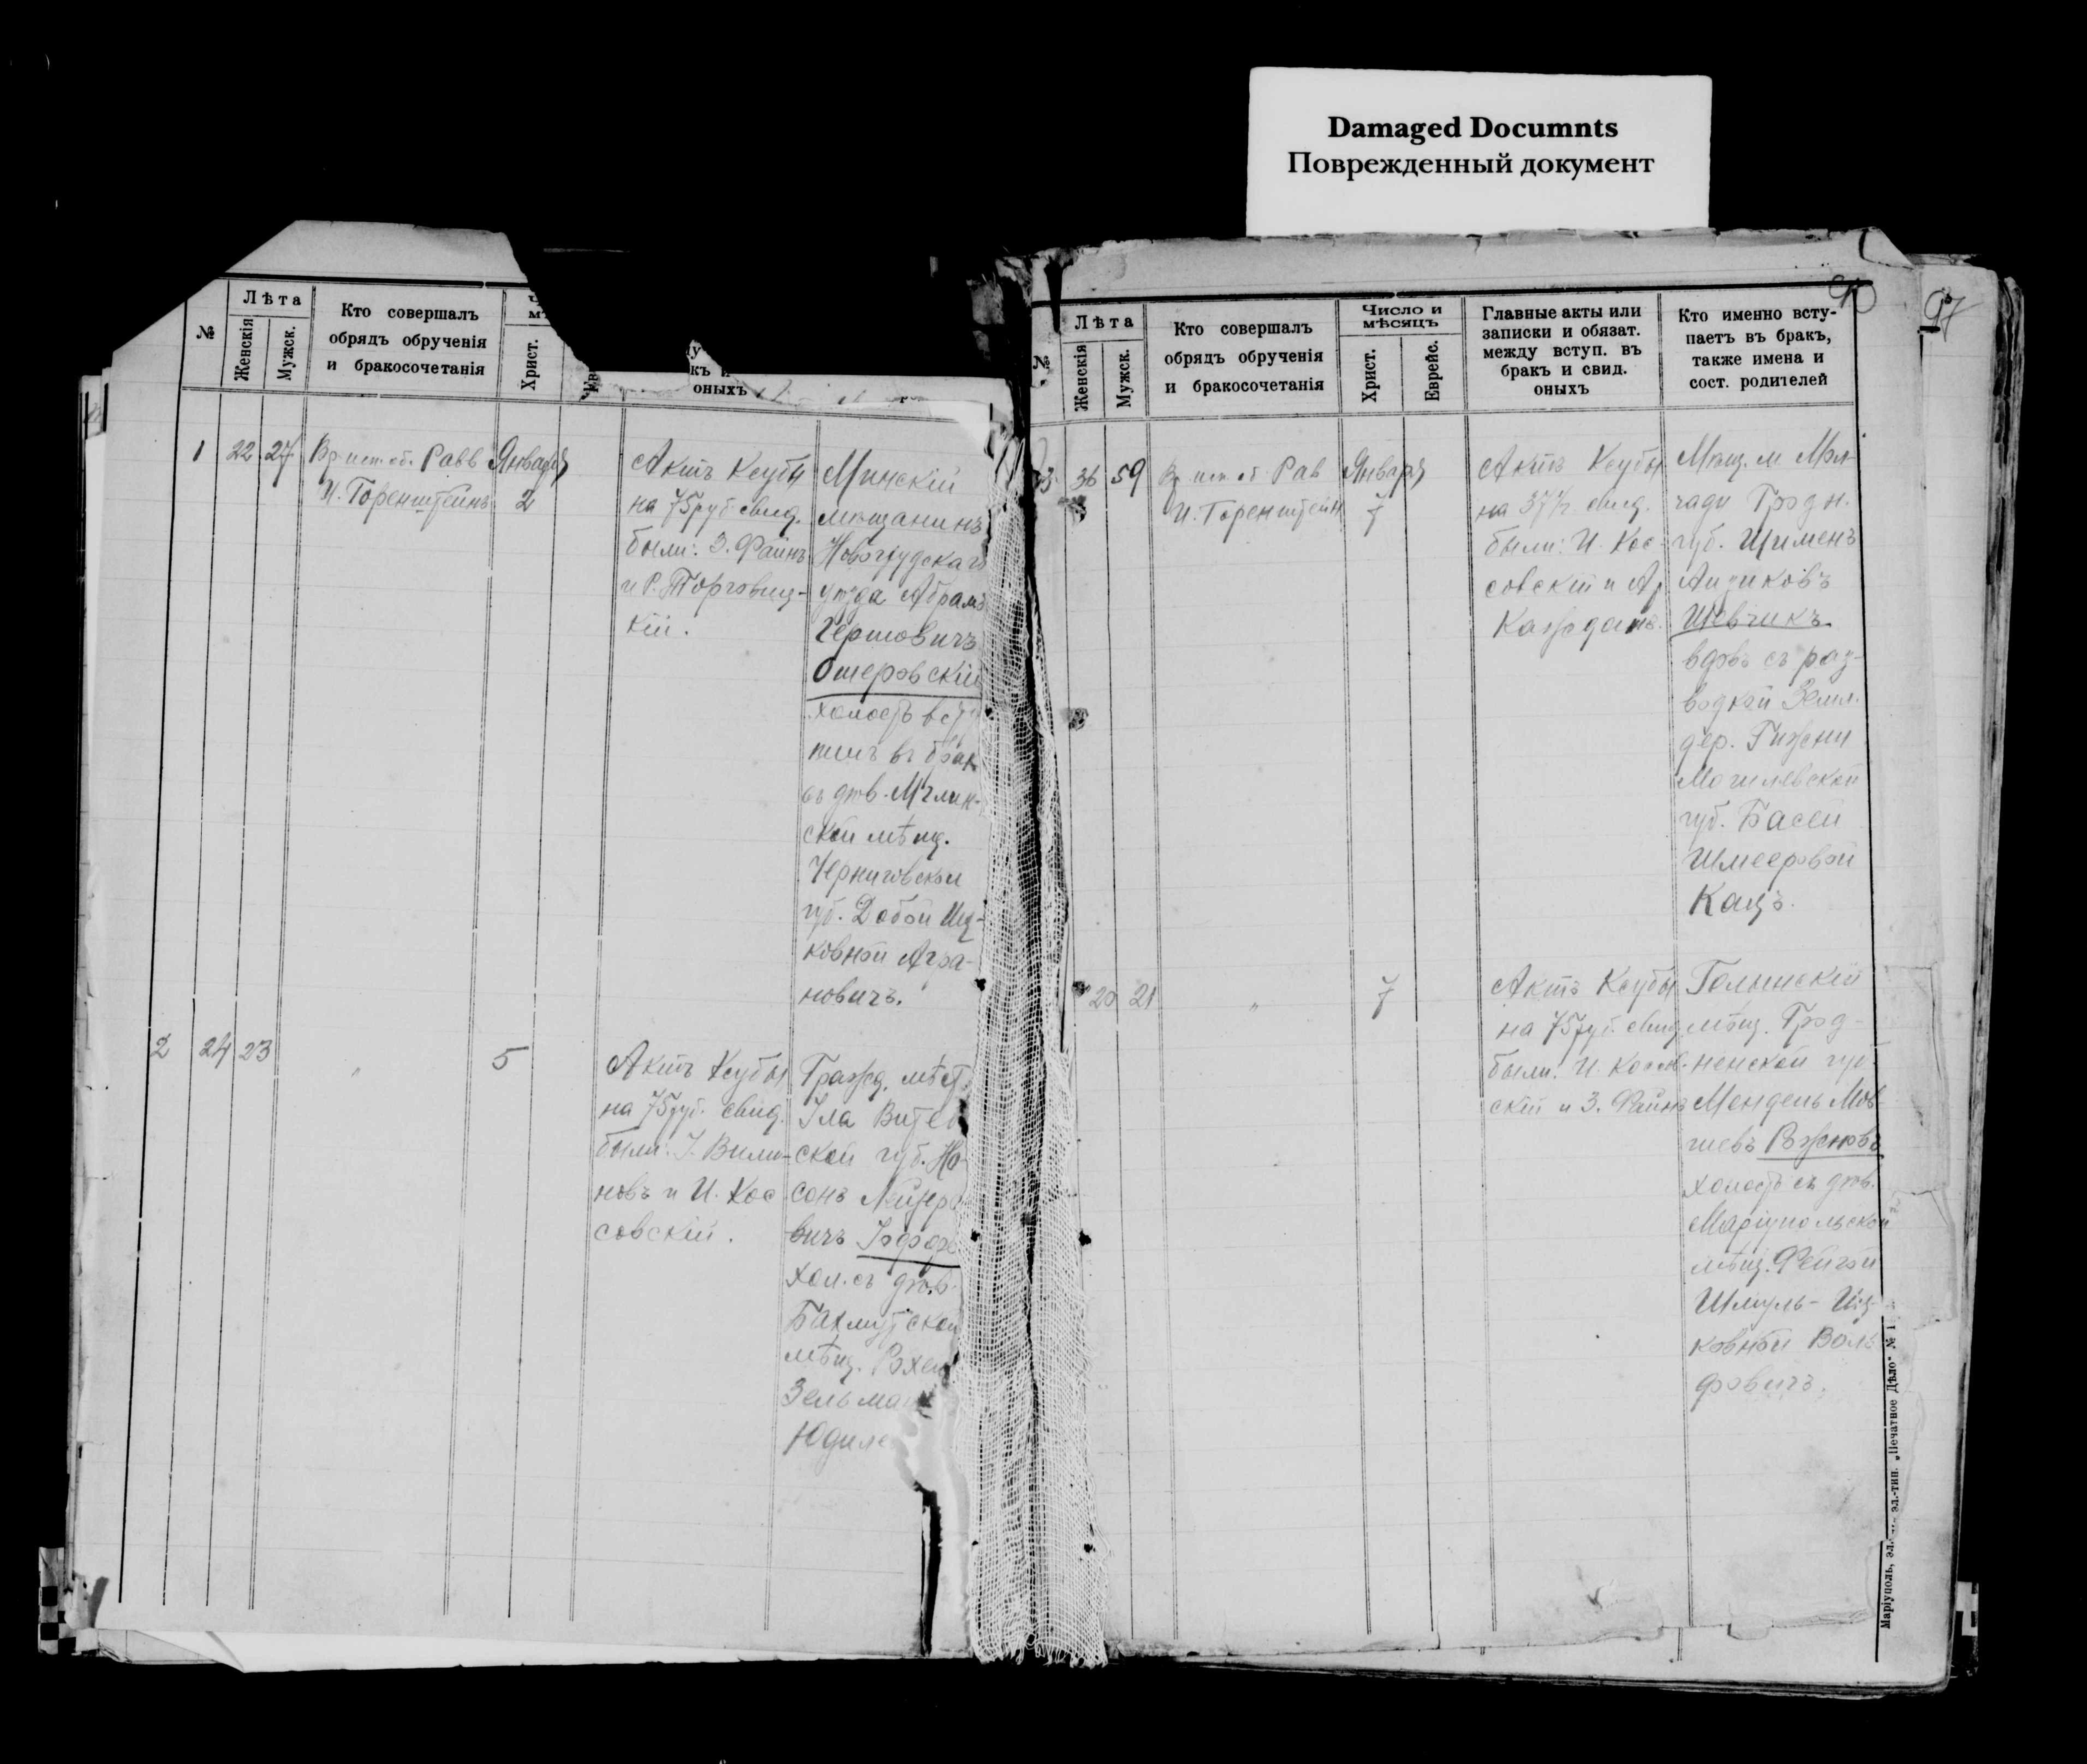 Damaged Documnts
Поврежденный документ
№
Лѣта
Женскія
Мужск.
Кто совершалъ
обрядъ обрученія
и бракосочетанія
Христ.
оныхъ
1
22
27
Равв
И. Горенштейнъ
Января
2
Актъ Ксубы
на 75 руб. свид.
были: З. Файнъ
и Р. Торговиц-
кій.
Минскій
мѣщанинъ
Новогрудскаго
уѣзда Абрамъ
Гершовичъ
Ошеровскій
холостъ всту
пилъ въ брак
съ дѣв. Мглин-
ской мѣщ.
Черниговской
губ. Добой Иц-
ковной Агра-
новичъ.
2
24
23
5
Актъ Ксубы
на 75 руб. свид.
были: І. Вили-
новъ и И. Кос
совскій.
Гражд. мѣст.
Витеб
ской губ. Но
сонъ
вичъ
хол. съ дѣв.
Бахмутской
мѣщ. Рохел
Зельман
Юдиле
90
97
№
Лѣта
Женскія
Мужск.
Кто совершалъ
обрядъ обрученія
и бракосочетанія
Число и
мѣсяцъ
Христ.
Еврейс.
Главные акты или
записки и обязат.
между вступ. въ
бракъ и свид.
оныхъ
Кто именно всту-
паетъ въ бракъ,
также имена и
сост. родителей
3
36
59
Рав
И. Горенштейн
Января
7
Актъ Ксубы
на 37½ свид.
были: И. Кос-
совскій и Ар
Каждаnъ.
Мѣщ. м. Мол-
чади Гродн.
губ. Шименъ
Айзиковъ
Шевчикъ
вдовъ съ раз-
водкой Земл.
дер.
Могилевской
губ. Басей
Шмееровой
Кацъ.
20
21
"
7
Актъ Ксубы
на 75 руб. свид.
были: И. Коссов-
скій и З. Файнъ
Голынскій
мѣщ. Грод-
ненской губ.
Мендель Мов-
шевъ
холостъ съ дѣв.
Маріупольской
мѣщ. Фейгой
Шмуль-Иц-
ковной Воль
фовичъ.
Маріуполь, эл.-тип. „Печатное Дѣло“ № 1